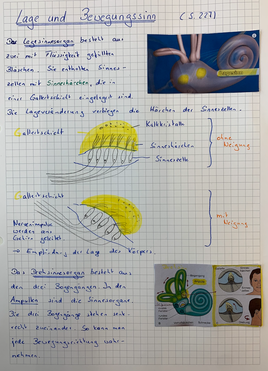 Lage und Bewegungssinn (S. 227)
Das Lagesinnesorgan besteht aus
zwei mit Flüssigkeit gefüllten
Bläschen. Sie enthalten Sinnes-
zellen mit Sinneshärchen, die in
einer Gallertschicht eingelagert sind.
Die Lageveränderung verbiegen die Härchen der Sinneszellen.
Gallertschicht
Kalkkristalle
Sinneshärchen
Sinneszelle
ohne
Neigung
Gallertschicht
Nervenimpulse
werden ans
Gehirn geleitet
mit
Neigung
→ Empfindung der Lage des Körpers.
Das Drehsinnesorgan besteht aus
den drei Bogengängen. In den
Ampullen sind die Sinnesorgane.
Die drei Bogengänge stehen senk-
recht zueinander. So kann man
jede Bewegungsrichtung wahr-
nehmen.